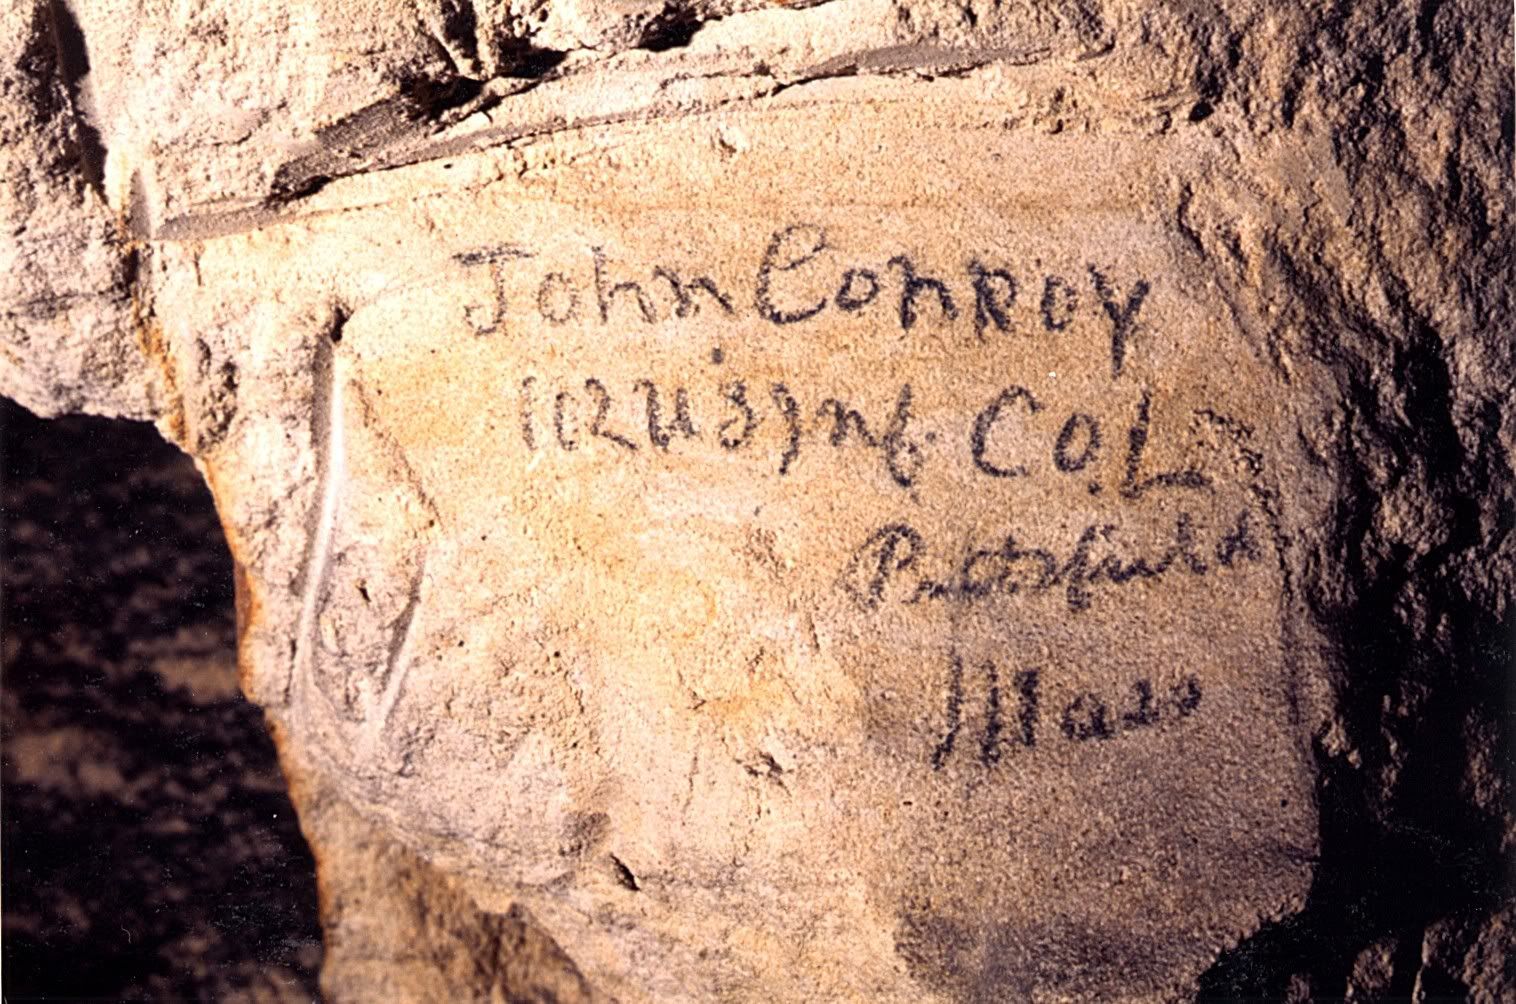 John Conroy
102 U.S Inf. Co. L
Pittsfield
Mass